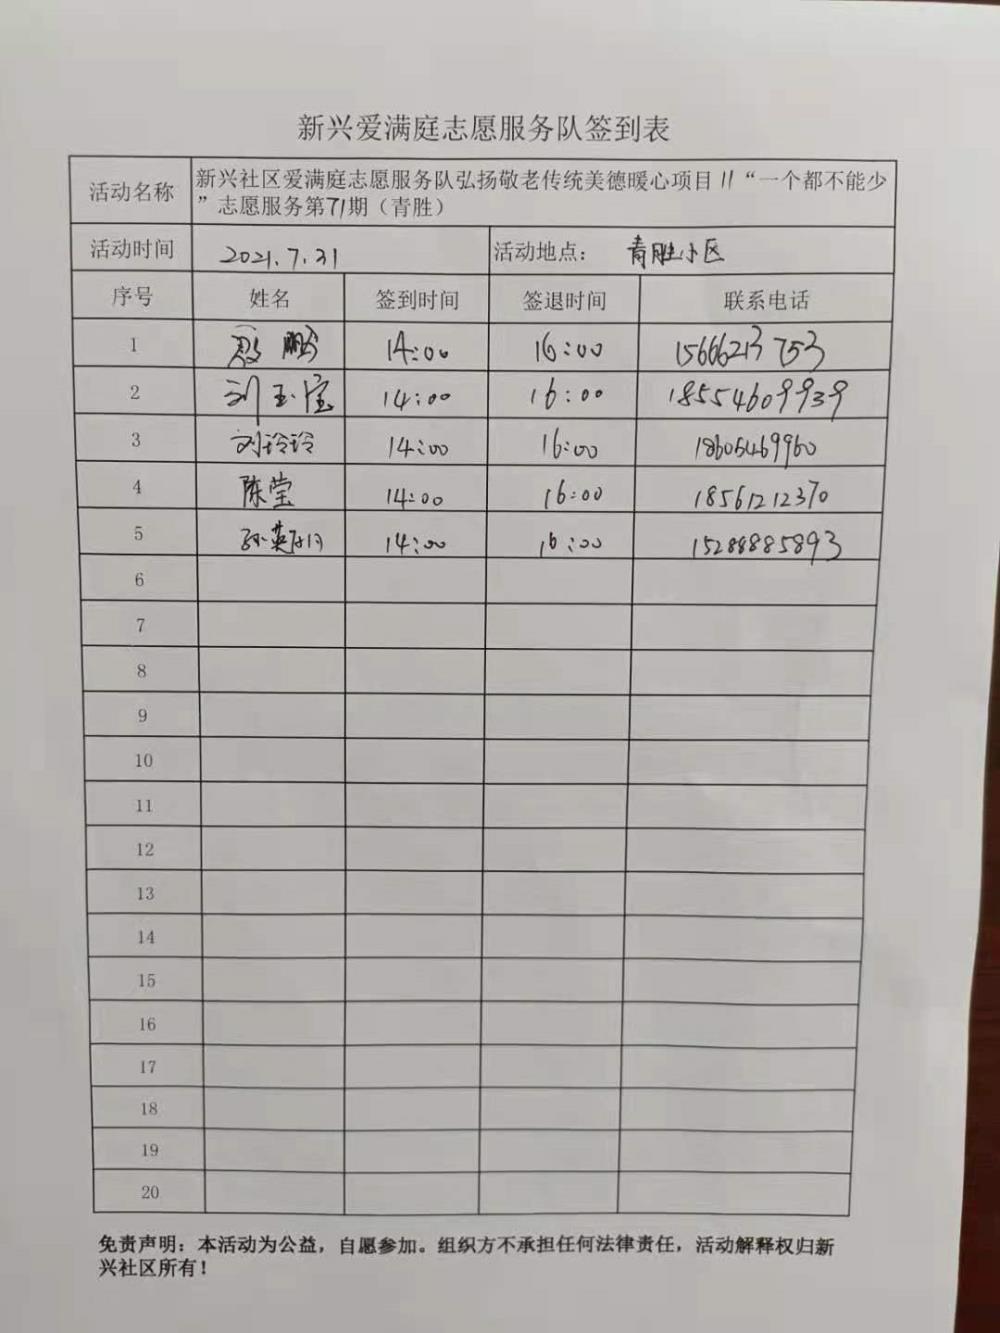 新兴爱满庭志愿服务队签到表
活动名称 新兴社区爱满庭志愿服务队弘扬敬老传统美德暖心项目11“一个都不能少
”志愿服务第71期（青胜）
活动时间 2021.7.31 活动地点： 青胜小区
序号 姓名 签到时间 签退时间 联系电话
1 殷鹏 14:00 16:00 15666213753
2 刘玉宝 14:00 16:00 18554609939
3 刘玲玲 14:00 16:00 18605469960
4 陈莹 14:00 16:00 18561212370
5 孙英 14:00 16:00 15288885893
6
7
8
9
10
11
12
13
14
15
16
17
18
19
20
免责声明：本活动为公益，自愿参加。组织方不承担任何法律责任，活动解释权归新
兴社区所有！